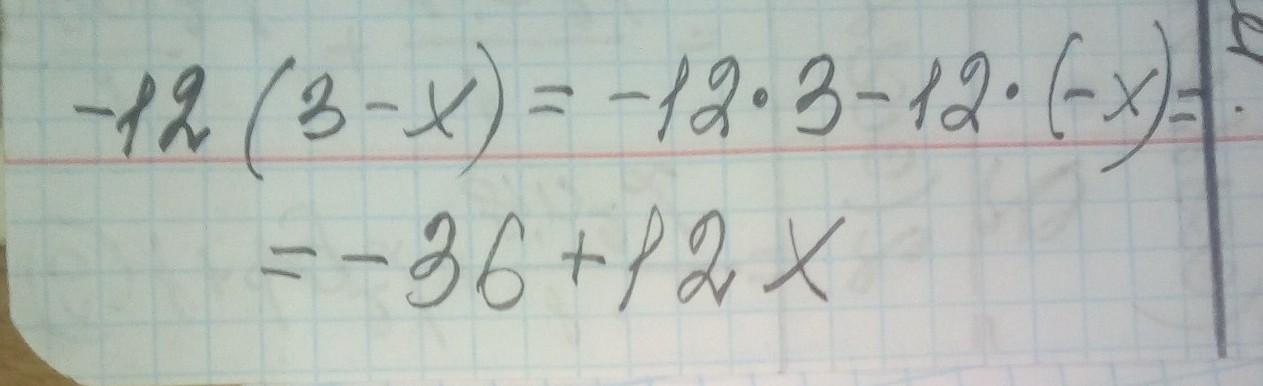 -12 (3 - x) = -12 · 3 - 12 · (-x) =
= -36 + 12 x